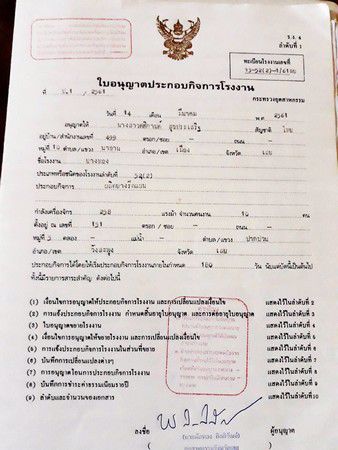 ร.ง. 4
ลำดับที่ 1
ทะเบียนโรงงานเลขที่
ใบอนุญาตประกอบกิจการโรงงาน
ที่ /2561
กระทรวงอุตสาหกรรม
วันที่ 14 เดือน มีนาคม พ.ศ. 2561
อนุญาตให้ สัญชาติ ไทย
อยู่บ้าน/สำนักงานเลขที่ 499 ตรอก/ซอย - ถนน -
หมู่ที่ 10 ตำบล/แขวง นาอาน อำเภอ/เขต เมือง จังหวัด เลย
ชื่อโรงงาน
ประเภทหรือชนิดของโรงงานลำดับที่ 52(2)
ประกอบกิจการ
กำลังเครื่องจักร 258 แรงม้า จำนวนคนงาน 10 คน
ตั้งอยู่ ณ เลขที่ 151 ตรอก/ซอย - ถนน -
หมู่ที่ 3 คลอง - แม่น้ำ - ตำบล/แขวง ปากปวน
อำเภอ/เขต วังสะพุง จังหวัด เลย
ประกอบกิจการได้โดยให้เริ่มประกอบกิจการโรงงานภายในกำหนด 180 วัน นับแต่บัดนี้เป็นต้นไป
ทั้งนี้มีรายการสาระสำคัญ ดังต่อไปนี้
(1) เงื่อนไขการอนุญาตให้ประกอบกิจการโรงงาน และการเปลี่ยนแปลงเงื่อนไข แสดงไว้ในลำดับที่ 2
(2) การแจ้งประกอบกิจการโรงงาน กำหนดสิ้นอายุใบอนุญาต และการต่ออายุใบอนุญาต แสดงไว้ในลำดับที่ 3
(3) ใบอนุญาตขยายโรงงาน แสดงไว้ในลำดับที่ 4
(4) เงื่อนไขการอนุญาตให้ขยายโรงงาน และการเปลี่ยนแปลงเงื่อนไข แสดงไว้ในลำดับที่ 5
(5) การแจ้งประกอบกิจการโรงงานในส่วนที่ขยาย แสดงไว้ในลำดับที่ 6
(6) บันทึกการเปลี่ยนแปลงต่างๆ แสดงไว้ในลำดับที่ 7
(7) การอนุญาตโอนการประกอบกิจการโรงงาน แสดงไว้ในลำดับที่ 8
(8) บันทึกการชำระค่าธรรมเนียมรายปี แสดงไว้ในลำดับที่ 9
(9) ลำดับและจำนวนของเอกสาร แสดงไว้ในลำดับที่ 10
ลงชื่อ ผู้อนุญาต